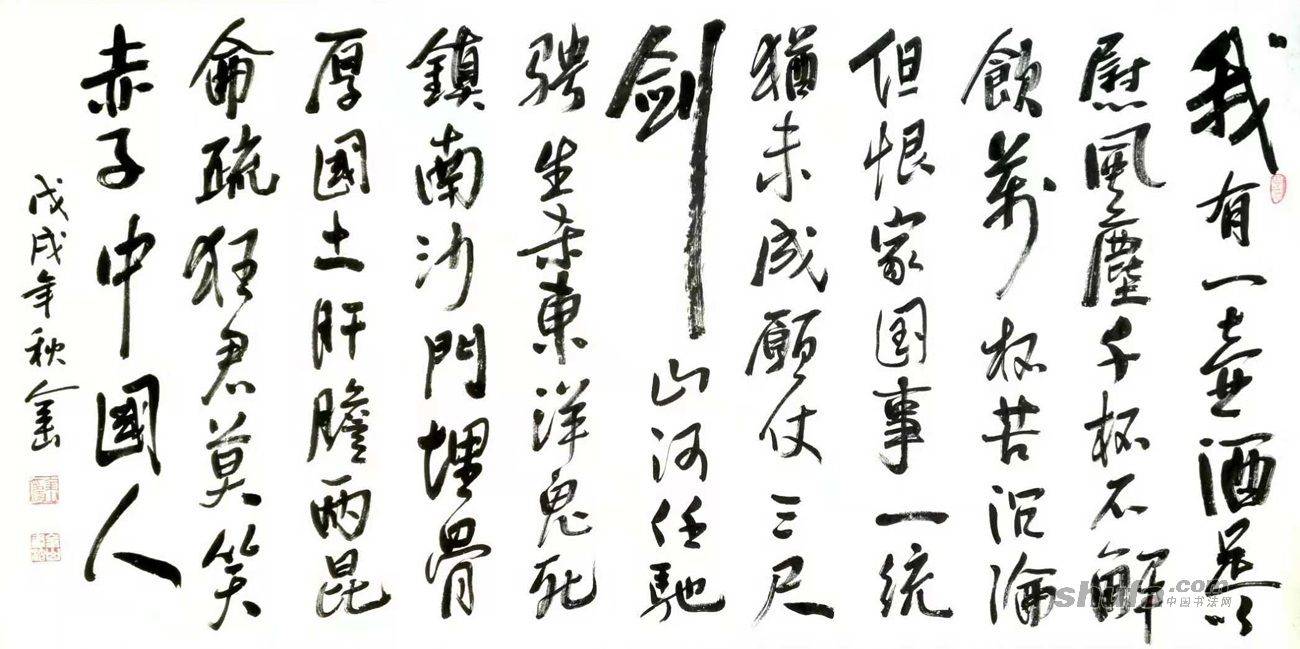 我有一壺酒足以
慰風塵千杯不解
飲萬杯苦沉淪
但恨家国事一統
猶未成願仗三尺
劍山河任馳
骋生杀東洋鬼死
鎮南沙門埋骨
厚國土肝膽兩昆
侖疏狂君莫笑
赤子中國人
戊戌年秋
.com
中国书法网